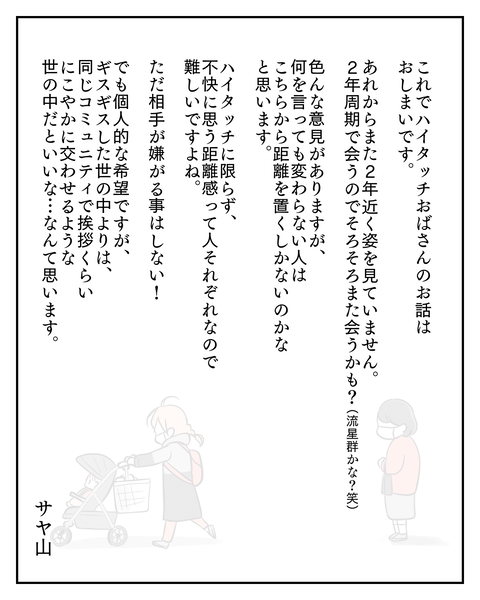 これでハイタッチおばさんのお話は
おしまいです。
あれからまた２年近く姿を見ていません。
２年周期で会うのでそろそろまた会うかも？（流星群かな？笑）
色んな意見がありますが、
何を言っても変わらない人は
こちらから距離を置くしかないのかな
と思います。
ハイタッチに限らず、
不快に思う距離感って人それぞれなので
難しいですよね。
ただ相手が嫌がる事はしない！
でも個人的な希望ですが、
ギスギスした世の中よりは、
同じコミュニティで挨拶くらい
にこやかに交わせるような
世の中だといいな…なんて思います。
サヤ山